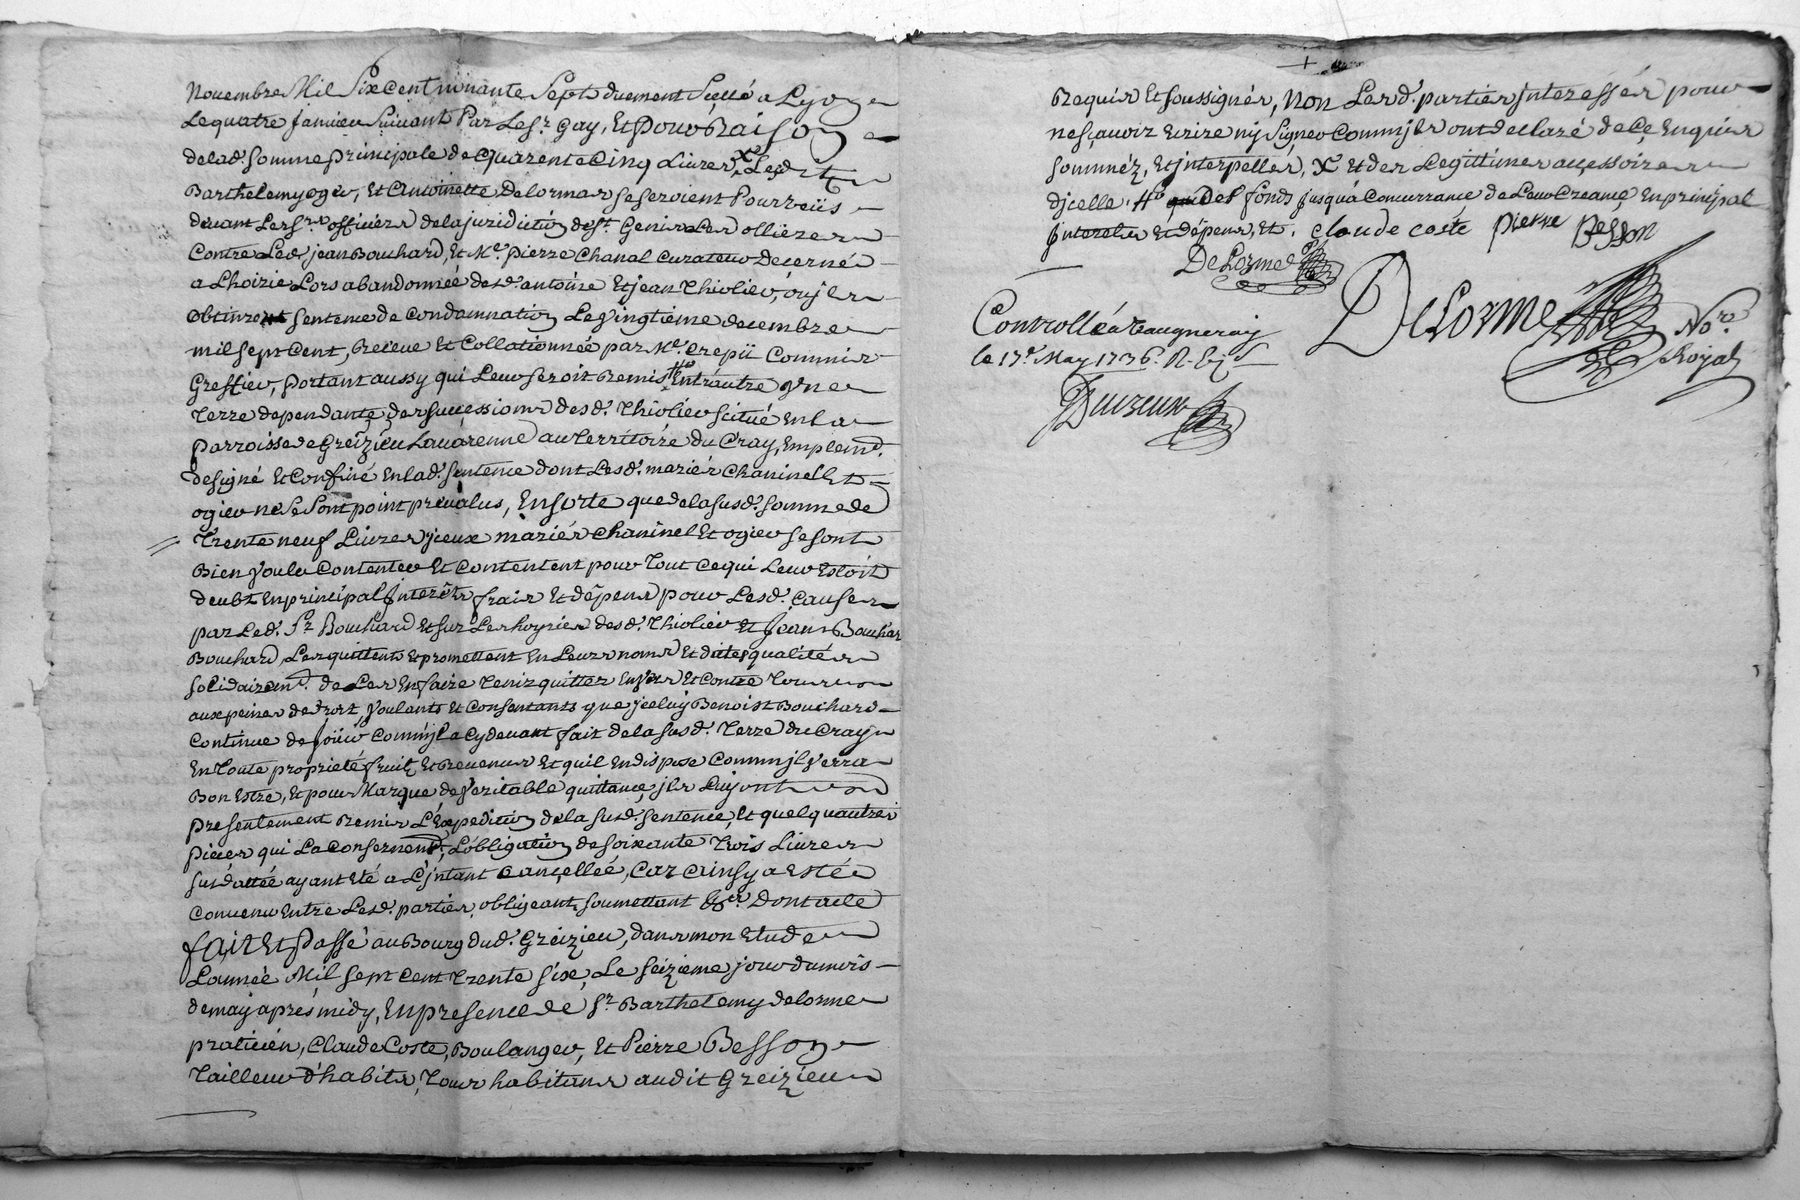 Novembre Mil Six Cent nonante Sept duement Scellé a Lyon
Le quatre Janvier Suivant Par Le Sr. Gay, Et Pour Raison
de lad. Somme principale de Quarente Cinq Livres X Lesdits
Barthelemy ogier, Et Antoinette Delormas se seroient Pourveüs
devant Les Srs. officiers de la juridiction de St. Genis Les ollieres
Contre Led. jean Bouchard, Et Me. pierre Chanal Curateur Decerné
a Lhoirie Lors abandonnée desd. antoine Et jean Thiolier, ou ils
obtinrent sentence de Condamnation Le vingtieme decembre
mil sept Cent, Receue Et Collationnée par Me. Crepü Commis
Greffier, portant aussy qui Leur seroit Remis # Entrautre une
Terre dependante des successions desd. Thiolier scitué En La
parroisse de Greizieu Lavarenne au Territoire du Cray, Emplemt.
designé Et Confiné En lad. sentence dont Lesd. mariés Chaninel Et
ogier ne se Sont point prevalus, En sorte que de la susd. somme de
Trente neuf Livres jceux mariés Chaninel Et ogier se sont
Bien voulu Contenter Et Contentent pour Tout Ce qui Leur Estoit
deubt En principal Jnterêts frais Et dépens pour Lesd. Causes
par Led. Sr. Bouchard Et sur Les hoyries desd. Thiolier Et Jean Bouchar
Bouchard, Les quittent Et promettent En Leurs noms Et dites qualités
solidairemt. de Les En faire Tenir quittes Envers Et Contre Tous
aux peines de droit, voulants Et Consentants que jceluy Benoist Bouchard
Continue de Joüir Comm'jl a Cy devant fait de la susd. Terre du Cray
En Toute proprieté fruits Et Revenus Et quil En dispose Comm'jl verra
Bon Estre, Et pour Marque de veritable quittance, jls Luy ont
presentement Remis L'Expedition de la susd. sentence, Et quelqu'autres
pieces qui La Consernent, L'obligation de soixante Trois Livres
susdattée ayant Eté a L'jnstant Cancellée, Car ainsy a Esté
Convenu Entre Lesd. parties, obligeant, soumettant &c. Dont acte
fait Et Passé au Bourg dud. Greizieu, dans mon Etude
L'année Mil Sept Cent Trente Six, Le seizieme jour du mois
de may aprés midy, En presence de Sr. Barthelemy delorme
praticien, Claude Coste, Boulanger, Et Pierre Besson
Tailleur d'habits, Tous habitans audit Greizieu
Requis Et soussignés, Non Lesd. parties jnteressés pour
ne sçavoir Ecrire ny Signer Comm'jls ont declaré de Ce Enquis
sommés, Et jnterpellés, X Et des Legittimes accessoires
d'jcelle, # des fonds jusqu'à Concurrance de Leur Creance En principal
jnterets Et dépens, Et. claude coste pierre Besson
DeLorme
DeLorme No.re Royal
Controllé à Vaugneray
le 17e. May 1736. R.